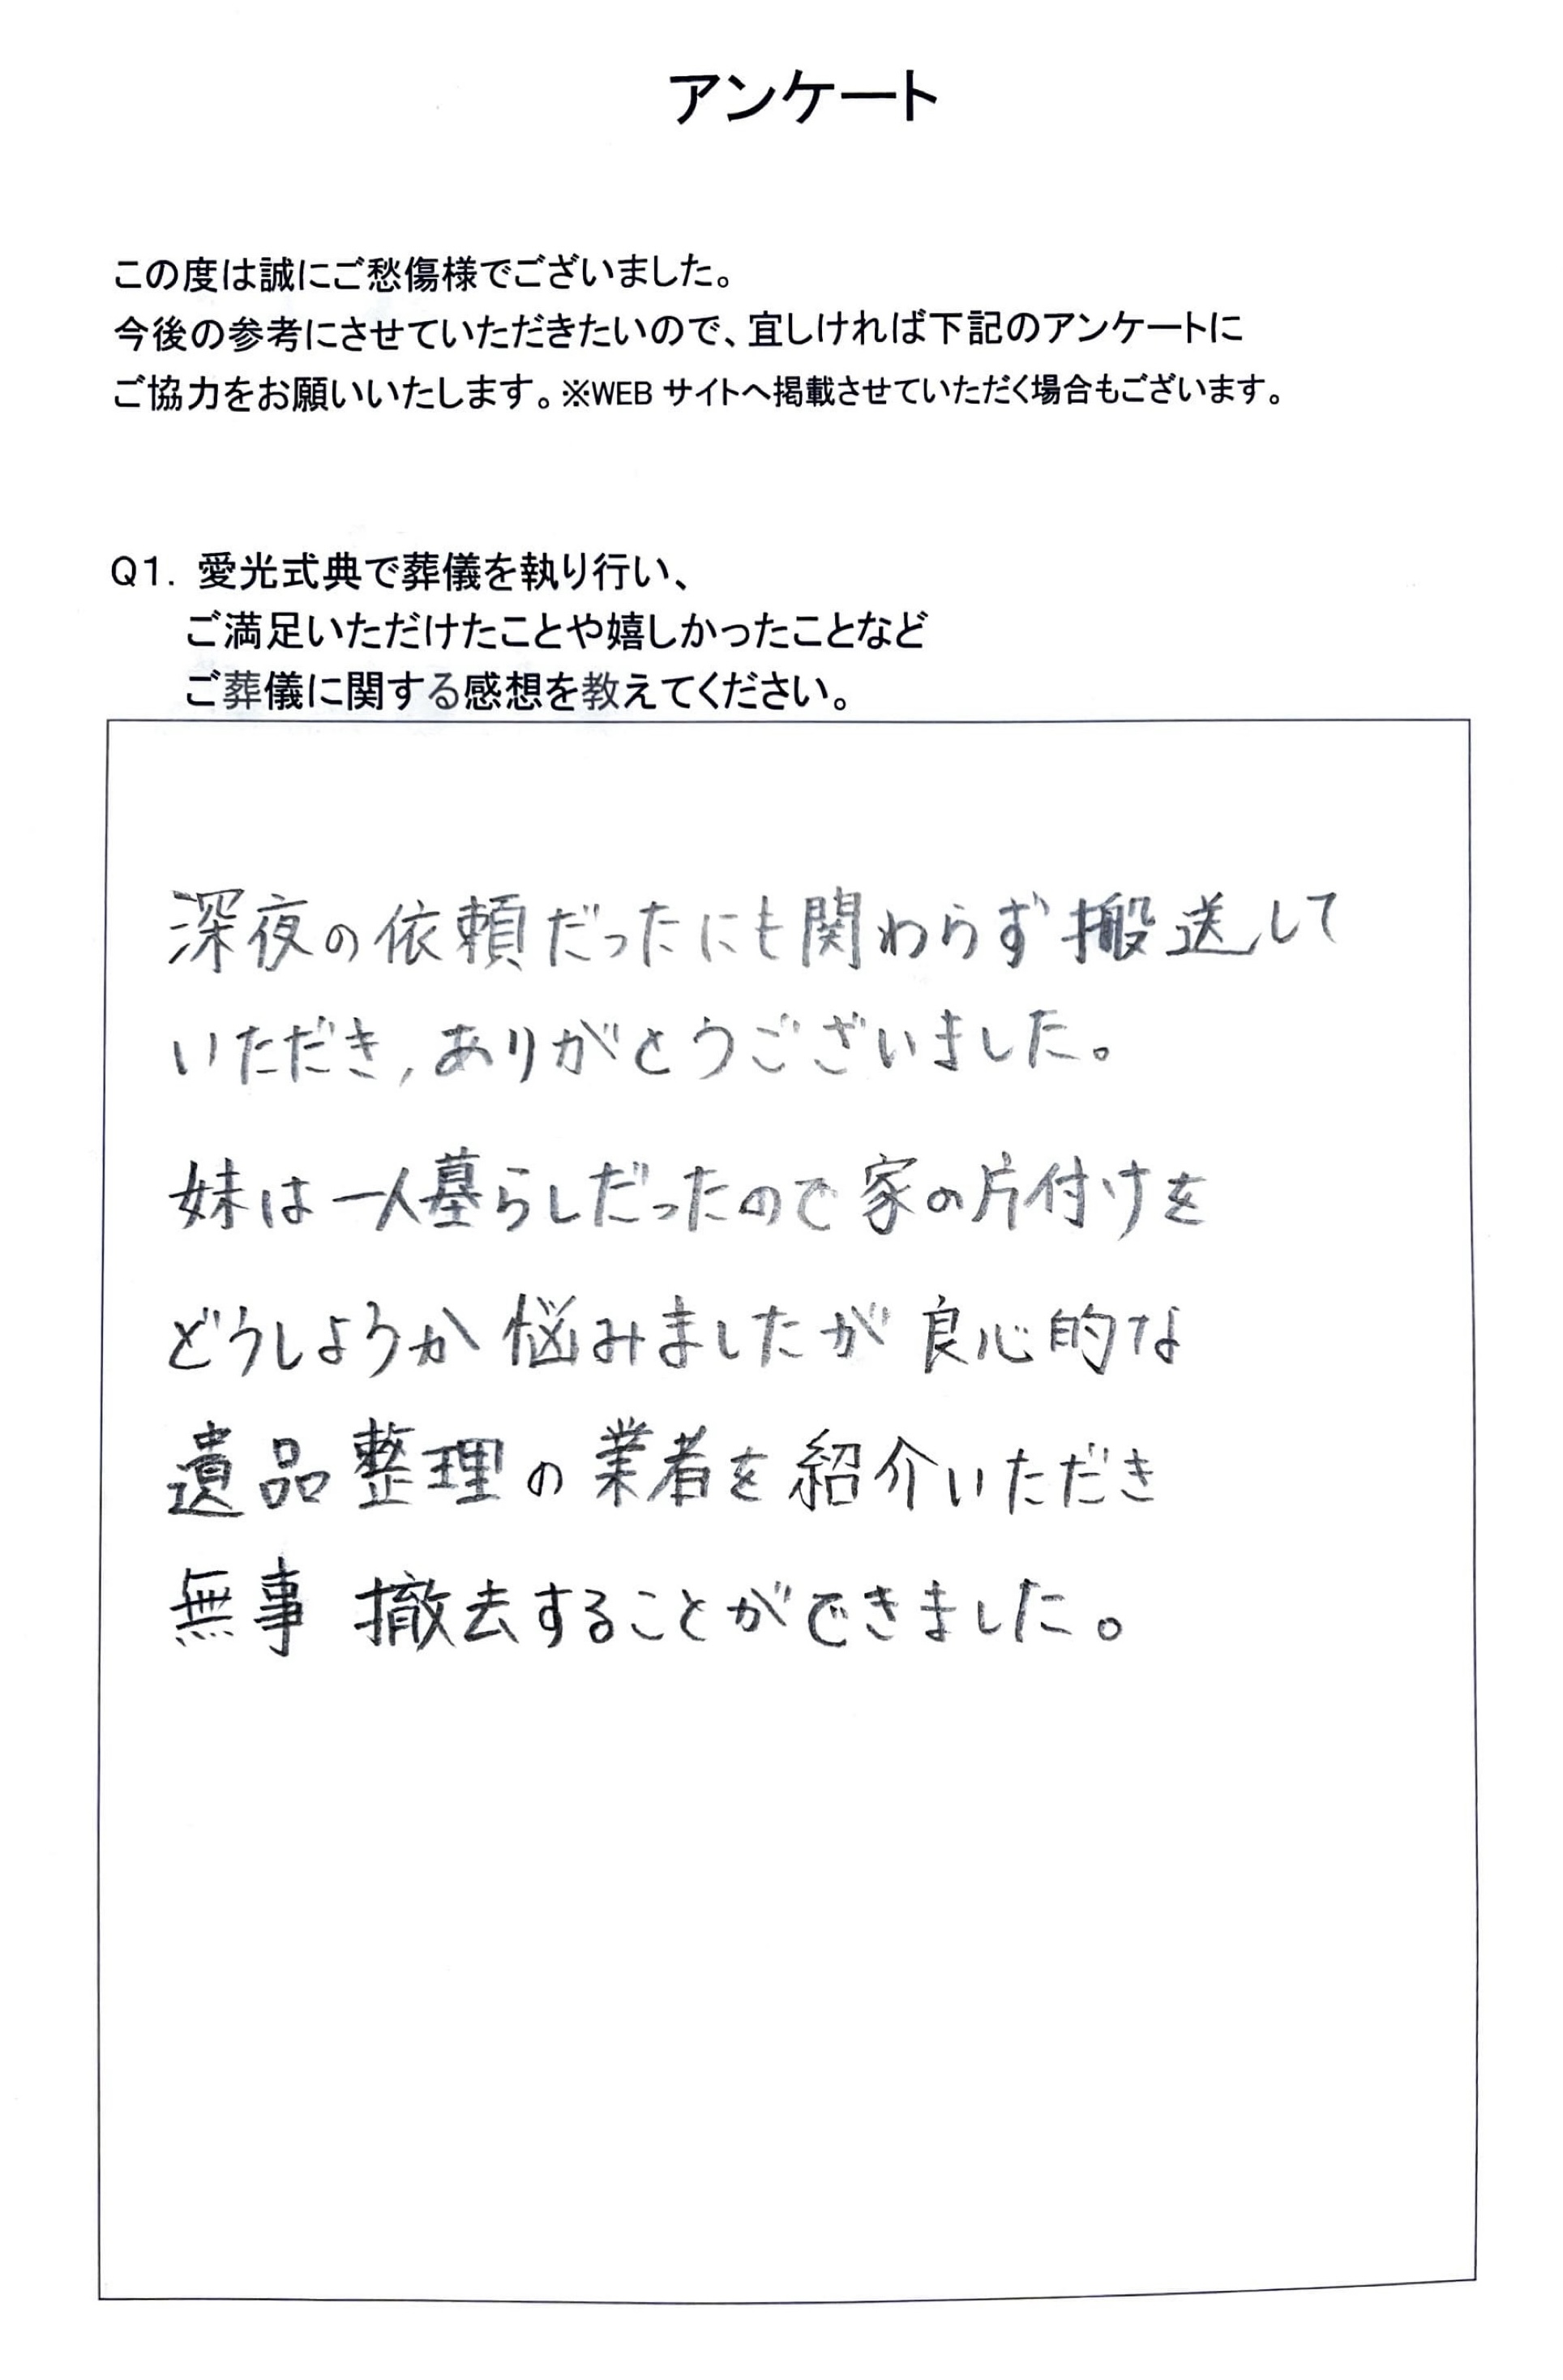 アンケート
この度は誠にご愁傷様でございました。
今後の参考にさせていただきたいので、宜しければ下記のアンケートに
ご協力をお願いいたします。※WEB サイトへ掲載させていただく場合もございます。
Q1. 愛光式典で葬儀を執り行い、
ご満足いただけたことや嬉しかったことなど
ご葬儀に関する感想を教えてください。
深夜の依頼だったにも関わらず搬送して
いただき,ありがとうございました。
妹は一人墓らしだったので家の片付けを
どうしようか悩みましたが良心的な
遺品整理の業者を紹介いただき
無事 撤去することができました。